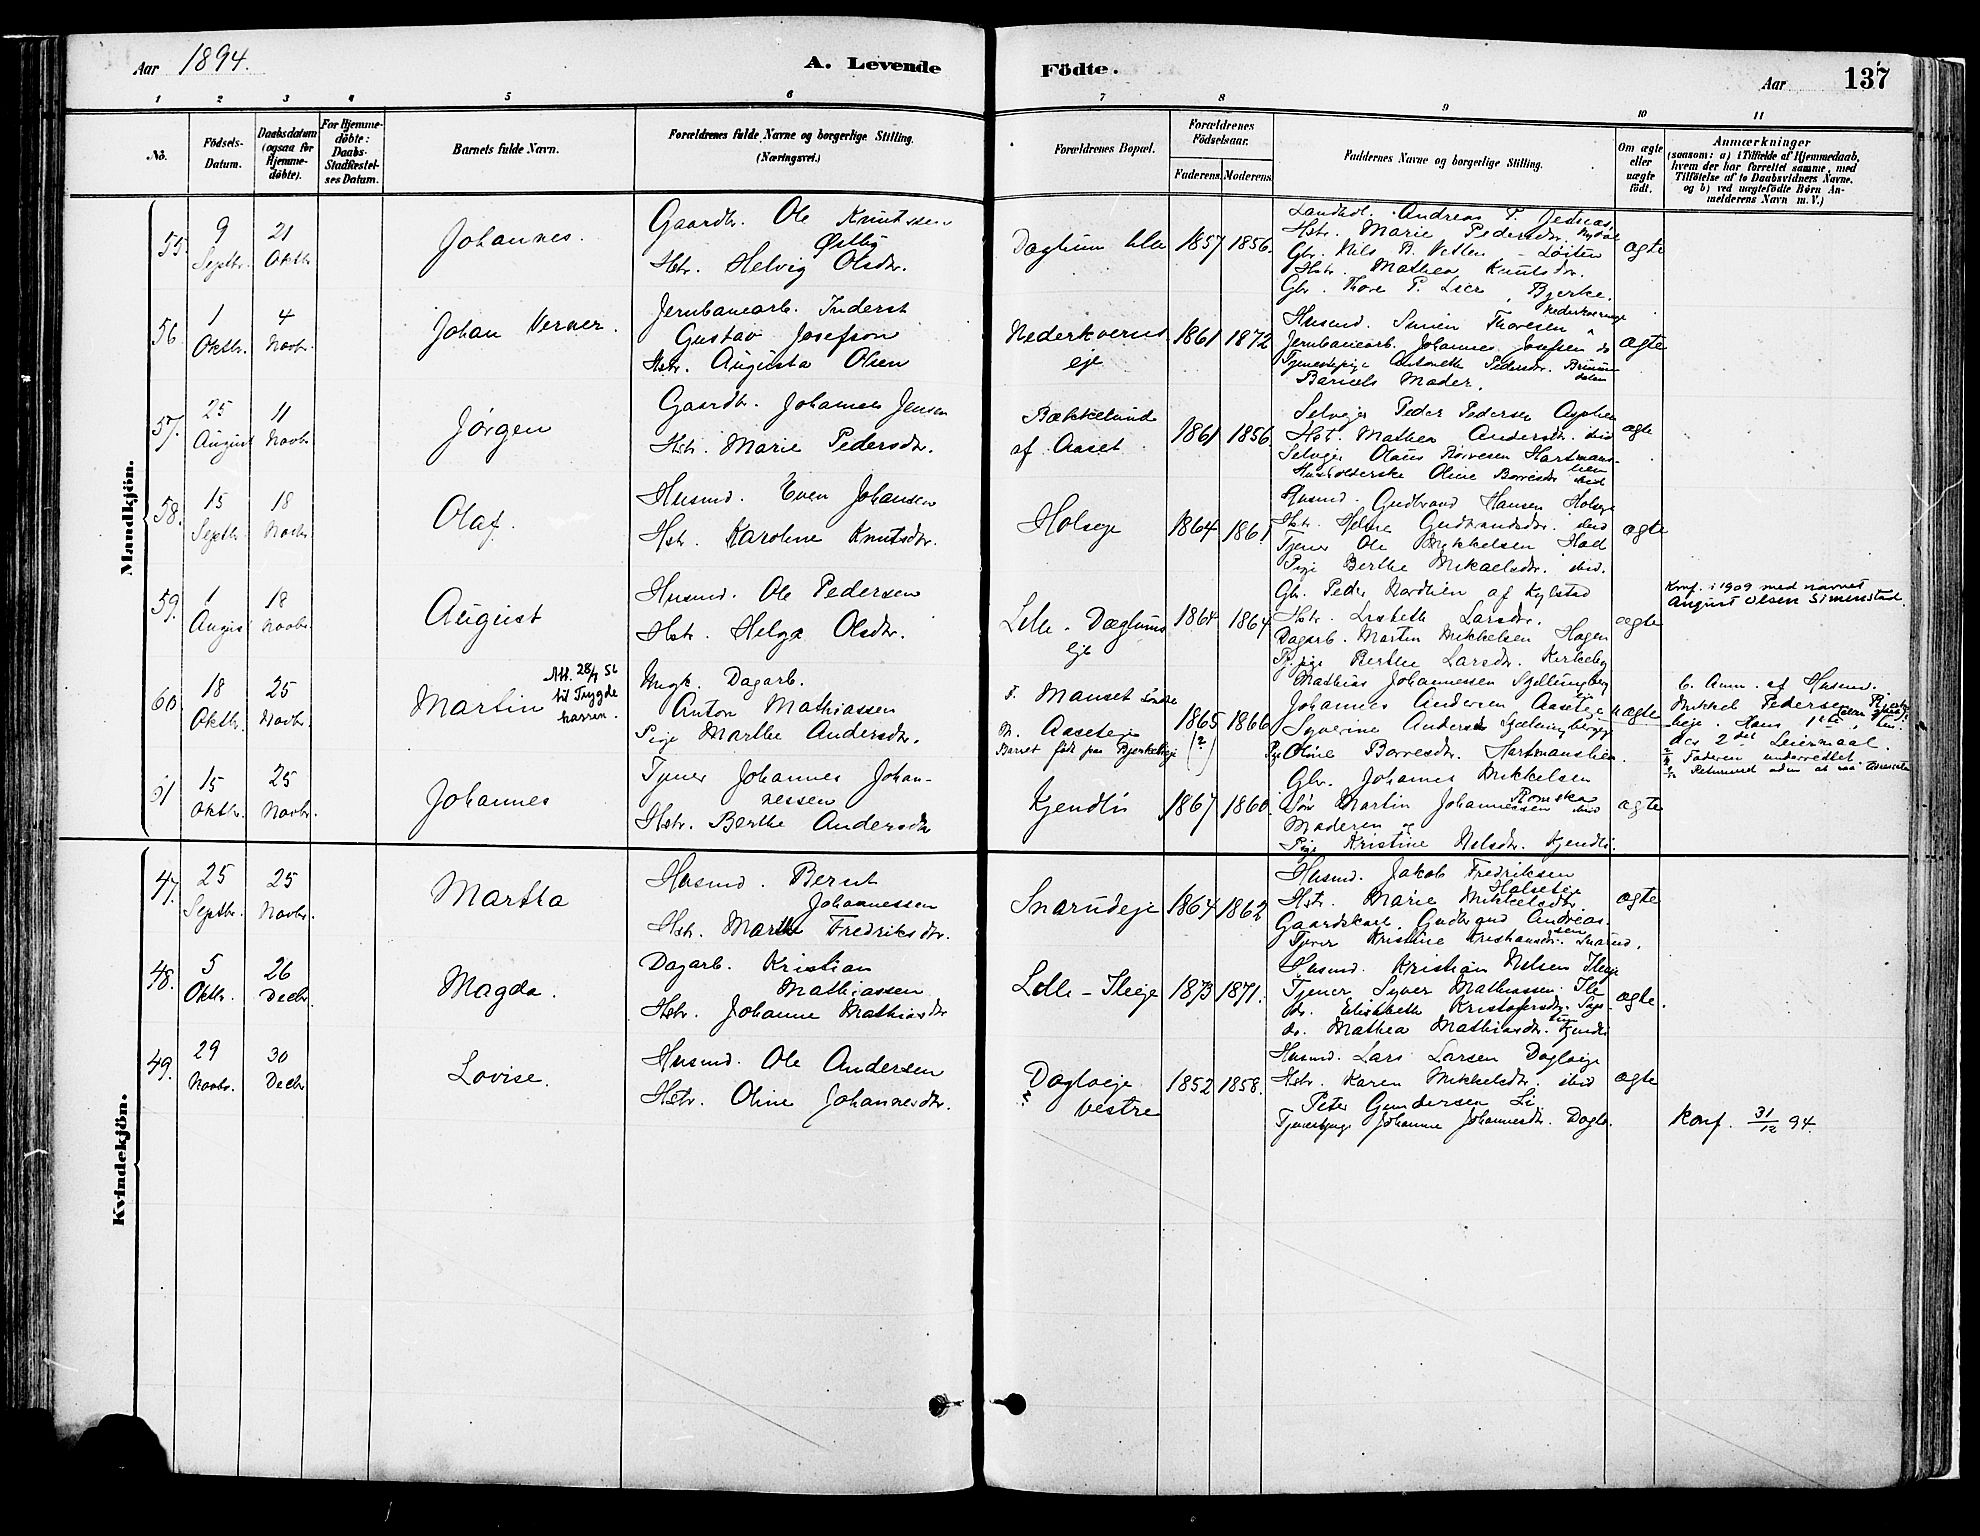 Aar 1894.
A. Levende
Födte.
Aar
137
1 2 3 4 5 6
7 8 9 10 11
No.
Födsels-
Datum.
Daabsdatum
(ogsaa for
Hjemme-
döbte).
For Hjemme-
döbte:
Daabs-
Stadfæstel-
ses Datum.
Barnets fulde Navn.
Forældrenes fulde Navne og borgerlige Stilling.
(Næringsvei.)
Forældrenes Bopæl.
Forældrenes
Födselsaar.
Faderens. Moderens.
Faddernes Navne og borgerlige Stilling.
Om ægte
eller
uægte
födt.
Anmærkninger
(saasom: a) i Tilfælde af Hjemmedaab,
hvem der har forrettet samme, med
Tilföielse af to Daabsvidners Navne.
og b) ved uægtefödte Börn An-
melderens Navn m. V.)
Mandkjön.
55.
9
Septbr.
21
Oktbr
Johannes.
Gaardbr. Ole Knutssen
Østby
Hstr. Helvig Olsdr.
Daglum lille
1857
1856.
Landhdl. Andreas T.
Hstr. Marie Pedersdr. Nydal
Gbr. Nils Vetlen - Løiten
Hstr. Mathea Knutsdr.
Gbr. Thore P. Lier, Bjerke.
ægte
56.
1
Oktbr.
4
Novbr.
Johan Verner.
Jernbanearb. Inderst
Gustav Josefson
Hstr. Augusta Olsen
Nederkverns
eje
1861
1872
Nederkvernseje
Husmd. Simen Thoresen
Jernbanearb. Johannes Josefsen do
Tjenestepige Antonette Pedersdr. Brumun
dalen
Barnets Moder.
ægte
57.
25
August
11
Novbr.
Jørgen
Gaardbr. Johannes Jensen
Hstr. Marie Pedersdr.
Bækkelund
af Aaset
1861
1856.
Selvejer Peder Pedersen
Hstr. Mathea Andersdr. ibid
Selvejer Olaus Børresen Hartmans-
lien
Husholderske Oline Børresdr ibid
ægte
58.
15
Septbr.
18
Novbr.
Olaf.
Husmd. Even Johansen
Hstr. Karoline Knutsdr.
Holseje
1864
1861
Husmd. Gudbrand Hansen Holseje
Hstr. Helene Gudbrandsdr. ibid
Tjener Ole Mikkelsen Hoel
Pige Berthe Mikaelsdr. ibid.
ægte
59.
1
August
18
Novbr.
August
Husmd. Ole Pedersen
Hstr. Helga Olsdr.
Lille-Dæglums
eje
1864
1864
Gbr. Peder Nordlien af Kylstad
Hstr. Lisbeth Larsdr.
Dagarb. Martin Mikkelsen Hagen
Tj.pige Berthe Larsdr. Kirkeby
ægte
Konf. i 1909 med navnet
August Olsen Simenstad.
60.
18
Oktbr.
25
Novbr.
Martin
Att. 28/9 56
til Trygde
kassen.
Ungk. Dagarb.
Anton Mathiassen
Pige Marthe Andersdr.
F. Manset søndre
M. Aaseteje
Barnet født paa Bjerkelieje
1865
(?)
1866
Mathias Johannessen Sjellungberg
Johannes Andersen Aaseteje
Syverine Andersdr Sjellungberg
Pige Oline Børresdr. Hartmanslien.
uægte
b. Anm. af Husmd.
Mikkel Pedersen Bjerke
lieje. Hans 1ste, hen-
des 2det Leiermaal.
Faderen underrettet.
61
15
Oktbr.
25
Novbr.
Johannes
Tjener Johannes Johan-
nessen
Hstr. Berthe Andersdr
Kjendli
1867
1860.
Gbr. Johannes Mikkelsen
Romskao
Søn Martin Johannessen ibid
Moderen og
Pige Kristine Nilsdr. Kjendli.
ægte
Kvindekjön.
47.
25
Septbr.
25
Novbr.
Martha
Husmd. Bernt
Johannessen
Hstr. Marthe Fredriksdr.
Snarudeje
1864
1862
Husmd. Jakob Fredriksen
Holseteje
Hstr. Marie Mikkelsdr
Gaardskarl Gudbrand Andreas-
sen
Tjener Kristine Kristiansdr. Snarud.
ægte
48.
5
Oktbr.
26
Decbr.
Magda.
Dagarb. Kristian
Mathiassen
Hstr. Johanne Mathiasdr
Lille-Ileeje
1873
1871.
Husmd. Kristian Nilsen Ileeje
Tjener Syver Mathiassen Ile
do. Elisabeth Kristofersdr.
do. Mathea Mathiasdr. Kjendli
ægte.
49.
29
Novbr.
30
Decbr
Lovise.
Husmd. Ole Andersen
Hstr. Oline Johannesdr.
Dogloeje
vestre
1852
1858.
Husmd. Lars Larsen Dogloeje
Hstr. Karen Mikkelsdr. ibid
Peter Gundersen Li
Tjenestepige Johanne Johannesdr. Doglo.
ægte
Konf. 31/12 94.